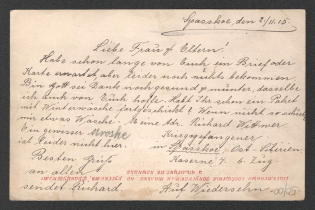 Spasskoe, den 2/11.15
Liebe Frau & Eltern!
Habe schon lange von Euch ein Brief oder
Karte erwartet, aber leider noch nichts bekommen
Bin Gott sei Dank noch gesund & munter, dasselbe
ich auch von Euch hoffe. Habt Ihr schon ein Paket
mit Winterwäsche fortgeschickt? Wenn nicht so schickt
mir etwas Wäsche. Meine Adr. Richard Wittmer
Ein gewisser Mroske
Kriegsgefangener
ist leider nicht hier.
in Spasskoe, Ost-Sibirien
Besten Gruß
Kaserne 7. 6 Zug
an allen
sendet Richard
Auf Wiedersehn